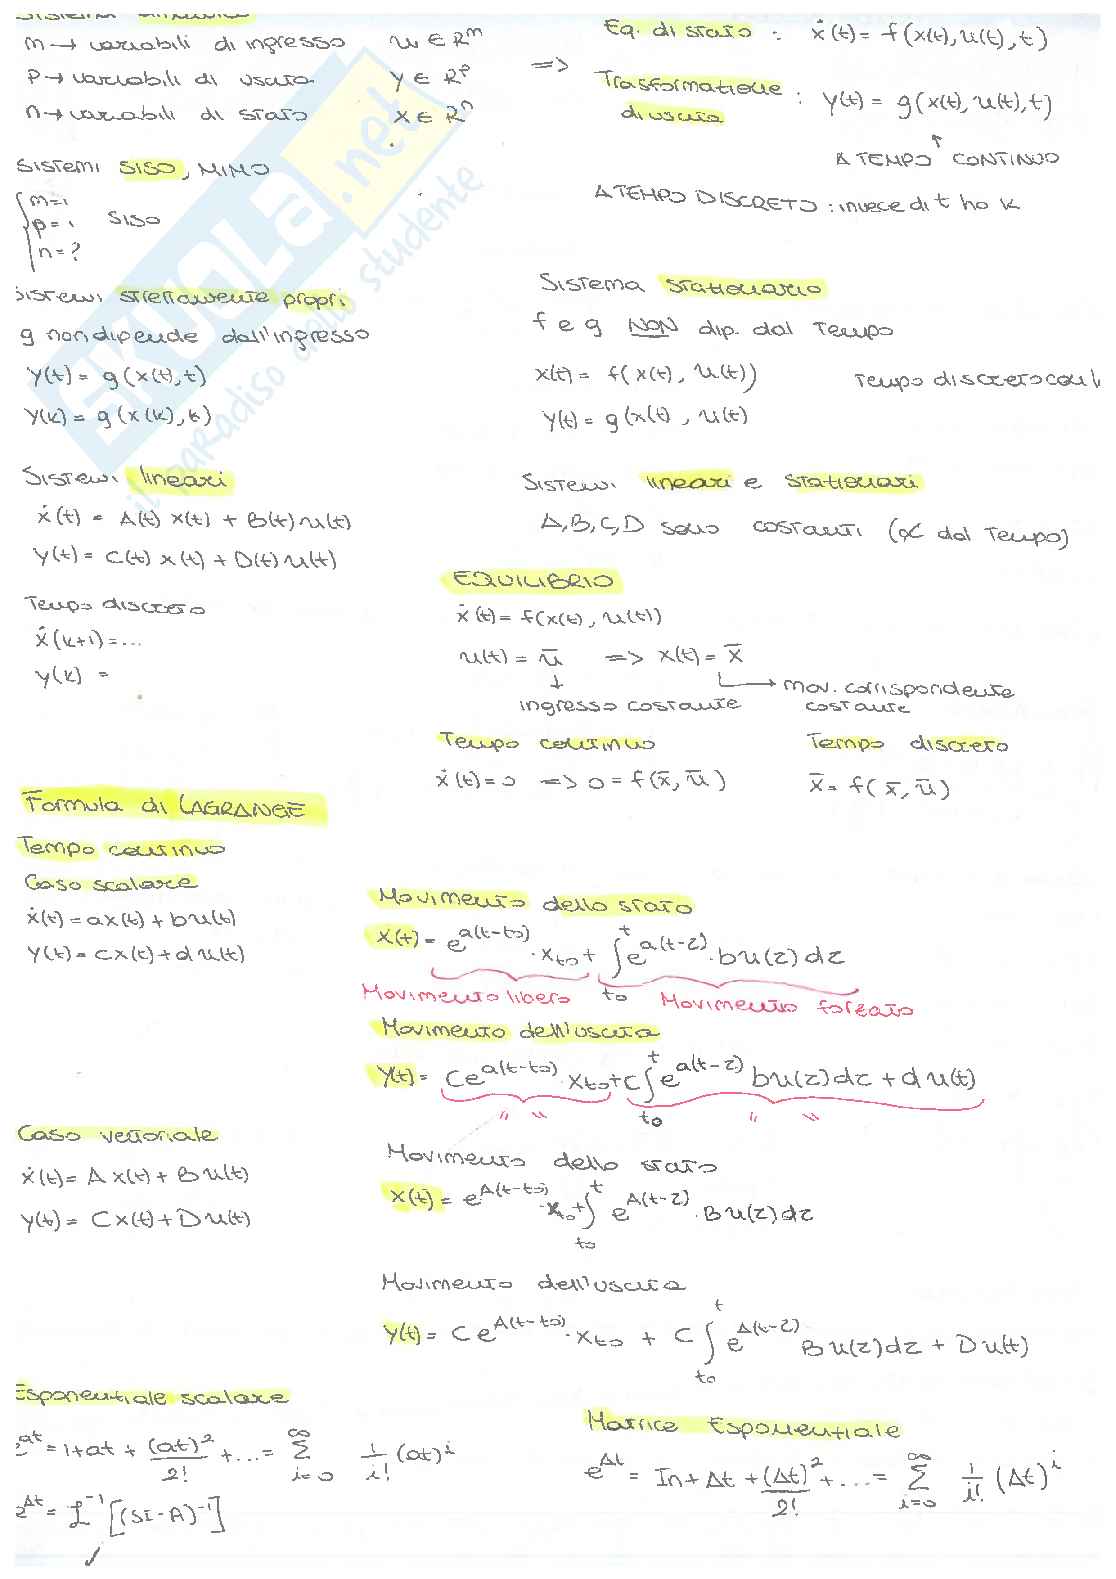 Sistemi dinamici
m → variabili di ingresso u ∈ R^m
p → variabili di uscita y ∈ R^p
n → variabili di stato x ∈ R^n
=>
Eq. di stato : ẋ(t) = f(x(t), u(t), t)
Trasformazione di uscita : y(t) = g(x(t), u(t), t)
↑
A TEMPO CONTINUO
A TEMPO DISCRETO : invece di t ho k
Sistemi SISO, MIMO
m=1
p=1 SISO
n=?
Sistemi strettamente propri
g non dipende dall'ingresso
y(t) = g(x(t), t)
y(k) = g(x(k), k)
Sistema stazionario
f e g NON dip. dal tempo
x(t) = f(x(t), u(t))
Tempo discreto con k
y(t) = g(x(t), u(t)
Sistemi lineari
ẋ(t) = A(t) x(t) + B(t) u(t)
y(t) = C(t) x(t) + D(t) u(t)
Tempo discreto
ẋ(k+1) = ...
y(k) =
Sistemi lineari e stazionari
A, B, C, D sono costanti (∝ dal tempo)
EQUILIBRIO
ẋ(t) = f(x(t), u(t))
u(t) = ū => x(t) = x̄
↓
ingresso costante
→ mov. corrispondente
costante
Tempo continuo
ẋ(t) = 0 => 0 = f(x̄, ū)
Tempo discreto
x̄ = f(x̄, ū)
Formula di LAGRANGE
Tempo continuo
Caso scalare
ẋ(t) = ax(t) + bu(t)
y(t) = cx(t) + du(t)
Movimento dello stato
x(t) = e^{a(t-t0)} · x_{t0} + ∫_{t0}^{t} e^{a(t-τ)} · bu(τ)dτ
Movimento libero Movimento forzato
Movimento dell'uscita
y(t) = ce^{a(t-t0)} · x_{t0} + c∫_{t0}^{t} e^{a(t-τ)} bu(τ)dτ + du(t)
" " " "
Caso vettoriale
ẋ(t) = Ax(t) + Bu(t)
y(t) = Cx(t) + Du(t)
Movimento dello stato
x(t) = e^{A(t-t0)} · x_{t0} + ∫_{t0}^{t} e^{A(t-τ)} · Bu(τ)dτ
Movimento dell'uscita
y(t) = Ce^{A(t-t0)} · x_{t0} + C ∫_{t0}^{t} e^{A(t-τ)} Bu(τ)dτ + Du(t)
Esponenziale scalare
e^{at} = 1 + at + (at)^2/2! + ... = Σ_{i=0}^{∞} 1/i! (at)^i
e^{At} = L^{-1} [(SI - A)^{-1}]
Matrice Esponenziale
e^{At} = In + At + (At)^2/2! + ... = Σ_{i=0}^{∞} 1/i! (At)^i
SKUOLA.net
il paradiso dello studente